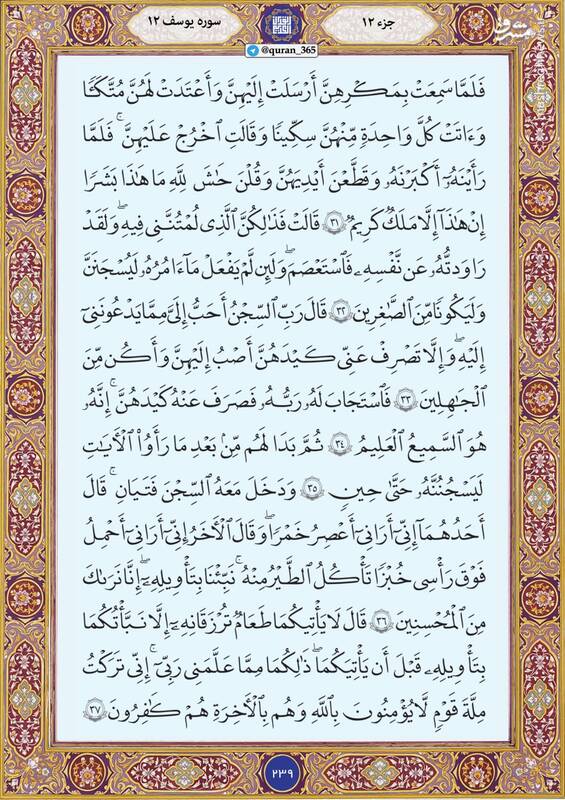 سوره یوسف ۱۲
جزء ۱۲
@quran_365
فَلَمَّا سَمِعَتْ بِمَكْرِهِنَّ أَرْسَلَتْ إِلَيْهِنَّ وَأَعْتَدَتْ لَهُنَّ مُتَّكَـًٔا
وَءَاتَتْ كُلَّ وَٰحِدَةٍ مِّنْهُنَّ سِكِّينًا وَقَالَتِ ٱخْرُجْ عَلَيْهِنَّ ۖ فَلَمَّا
رَأَيْنَهُۥٓ أَكْبَرْنَهُۥ وَقَطَّعْنَ أَيْدِيَهُنَّ وَقُلْنَ حَٰشَ لِلَّهِ مَا هَٰذَا بَشَرًا
إِنْ هَٰذَآ إِلَّا مَلَكٌ كَرِيمٌ ۝٣١ قَالَتْ فَذَٰلِكُنَّ ٱلَّذِى لُمْتُنَّنِى فِيهِ ۖ وَلَقَدْ
رَٰوَدتُّهُۥ عَن نَّفْسِهِۦ فَٱسْتَعْصَمَ ۖ وَلَئِن لَّمْ يَفْعَلْ مَآ ءَامُرُهُۥ لَيُسْجَنَنَّ
وَلَيَكُونًا مِّنَ ٱلصَّٰغِرِينَ ۝٣٢ قَالَ رَبِّ ٱلسِّجْنُ أَحَبُّ إِلَىَّ مِمَّا يَدْعُونَنِىٓ
إِلَيْهِ ۖ وَإِلَّا تَصْرِفْ عَنِّى كَيْدَهُنَّ أَصْبُ إِلَيْهِنَّ وَأَكُن مِّنَ
ٱلْجَٰهِلِينَ ۝٣٣ فَٱسْتَجَابَ لَهُۥ رَبُّهُۥ فَصَرَفَ عَنْهُ كَيْدَهُنَّ ۚ إِنَّهُۥ
هُوَ ٱلسَّمِيعُ ٱلْعَلِيمُ ۝٣٤ ثُمَّ بَدَا لَهُم مِّنۢ بَعْدِ مَا رَأَوُا۟ ٱلْـَٔايَٰتِ
لَيَسْجُنُنَّهُۥ حَتَّىٰ حِينٍ ۝٣٥ وَدَخَلَ مَعَهُ ٱلسِّجْنَ فَتَيَانِ ۖ قَالَ
أَحَدُهُمَآ إِنِّىٓ أَرَىٰنِىٓ أَعْصِرُ خَمْرًا ۖ وَقَالَ ٱلْـَٔاخَرُ إِنِّىٓ أَرَىٰنِىٓ أَحْمِلُ
فَوْقَ رَأْسِى خُبْزًا تَأْكُلُ ٱلطَّيْرُ مِنْهُ ۖ نَبِّئْنَا بِتَأْوِيلِهِۦٓ ۖ إِنَّا نَرَىٰكَ
مِنَ ٱلْمُحْسِنِينَ ۝٣٦ قَالَ لَا يَأْتِيكُمَا طَعَامٌ تُرْزَقَانِهِۦٓ إِلَّا نَبَّأْتُكُمَا
بِتَأْوِيلِهِۦ قَبْلَ أَن يَأْتِيَكُمَا ۚ ذَٰلِكُمَا مِمَّا عَلَّمَنِى رَبِّىٓ ۚ إِنِّى تَرَكْتُ
مِلَّةَ قَوْمٍ لَّا يُؤْمِنُونَ بِٱللَّهِ وَهُم بِٱلْـَٔاخِرَةِ هُمْ كَٰفِرُونَ ۝٣٧
٢٣٩